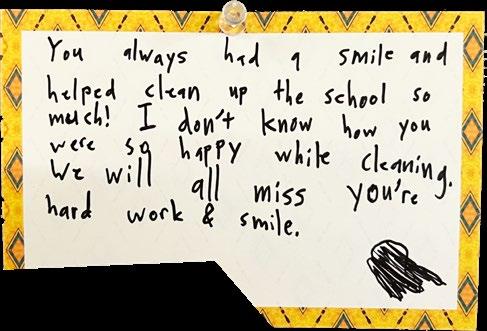 You always had a smile and
helped clean up the school so
much! I don't know how you
were so happy while cleaning.
We will all miss you're
hard work & smile.